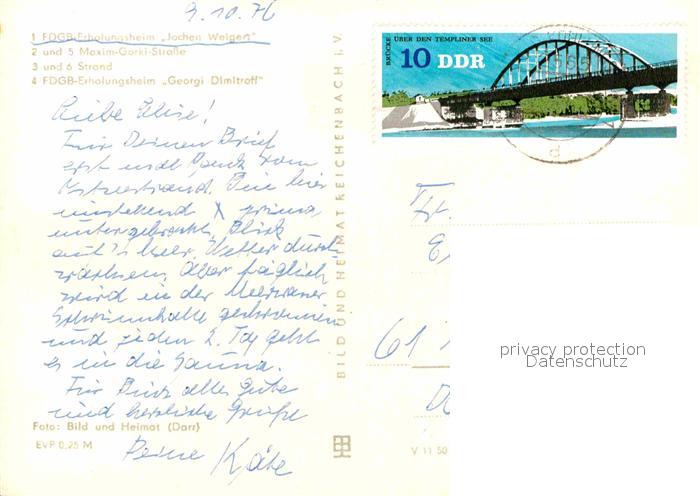 9.10.76
1 FDGB-Erholungsheim „Jochen Weigert"
2 und 5 Maxim-Gorki-Straße
3 und 6 Strand
4 FDGB-Erholungsheim „Georgi Dimitroff"
Liebe Elise!
Für Deinen Brief
erst mal Dank vom
Ostseestrand. Bin hier
umstehend X prima
untergebracht, Blick
auf's Meer. Wetter durch-
wachsen. Aber täglich
wird in der Meerwasser
Schwimmhalle geschwommen
und jeden 2. Tag geht
es in die Sauna.
Für Dich alles Gute
und herzliche Grüße
Deine Käte
Foto: Bild und Heimat (Darr)
EVP 0,25 M
BILD UND HEIMAT REICHENBACH I. V.
V 11 50
BRÜCKE ÜBER DEN TEMPLINER SEE
10 DDR
d
Fr.
61
privacy protection
Datenschutz